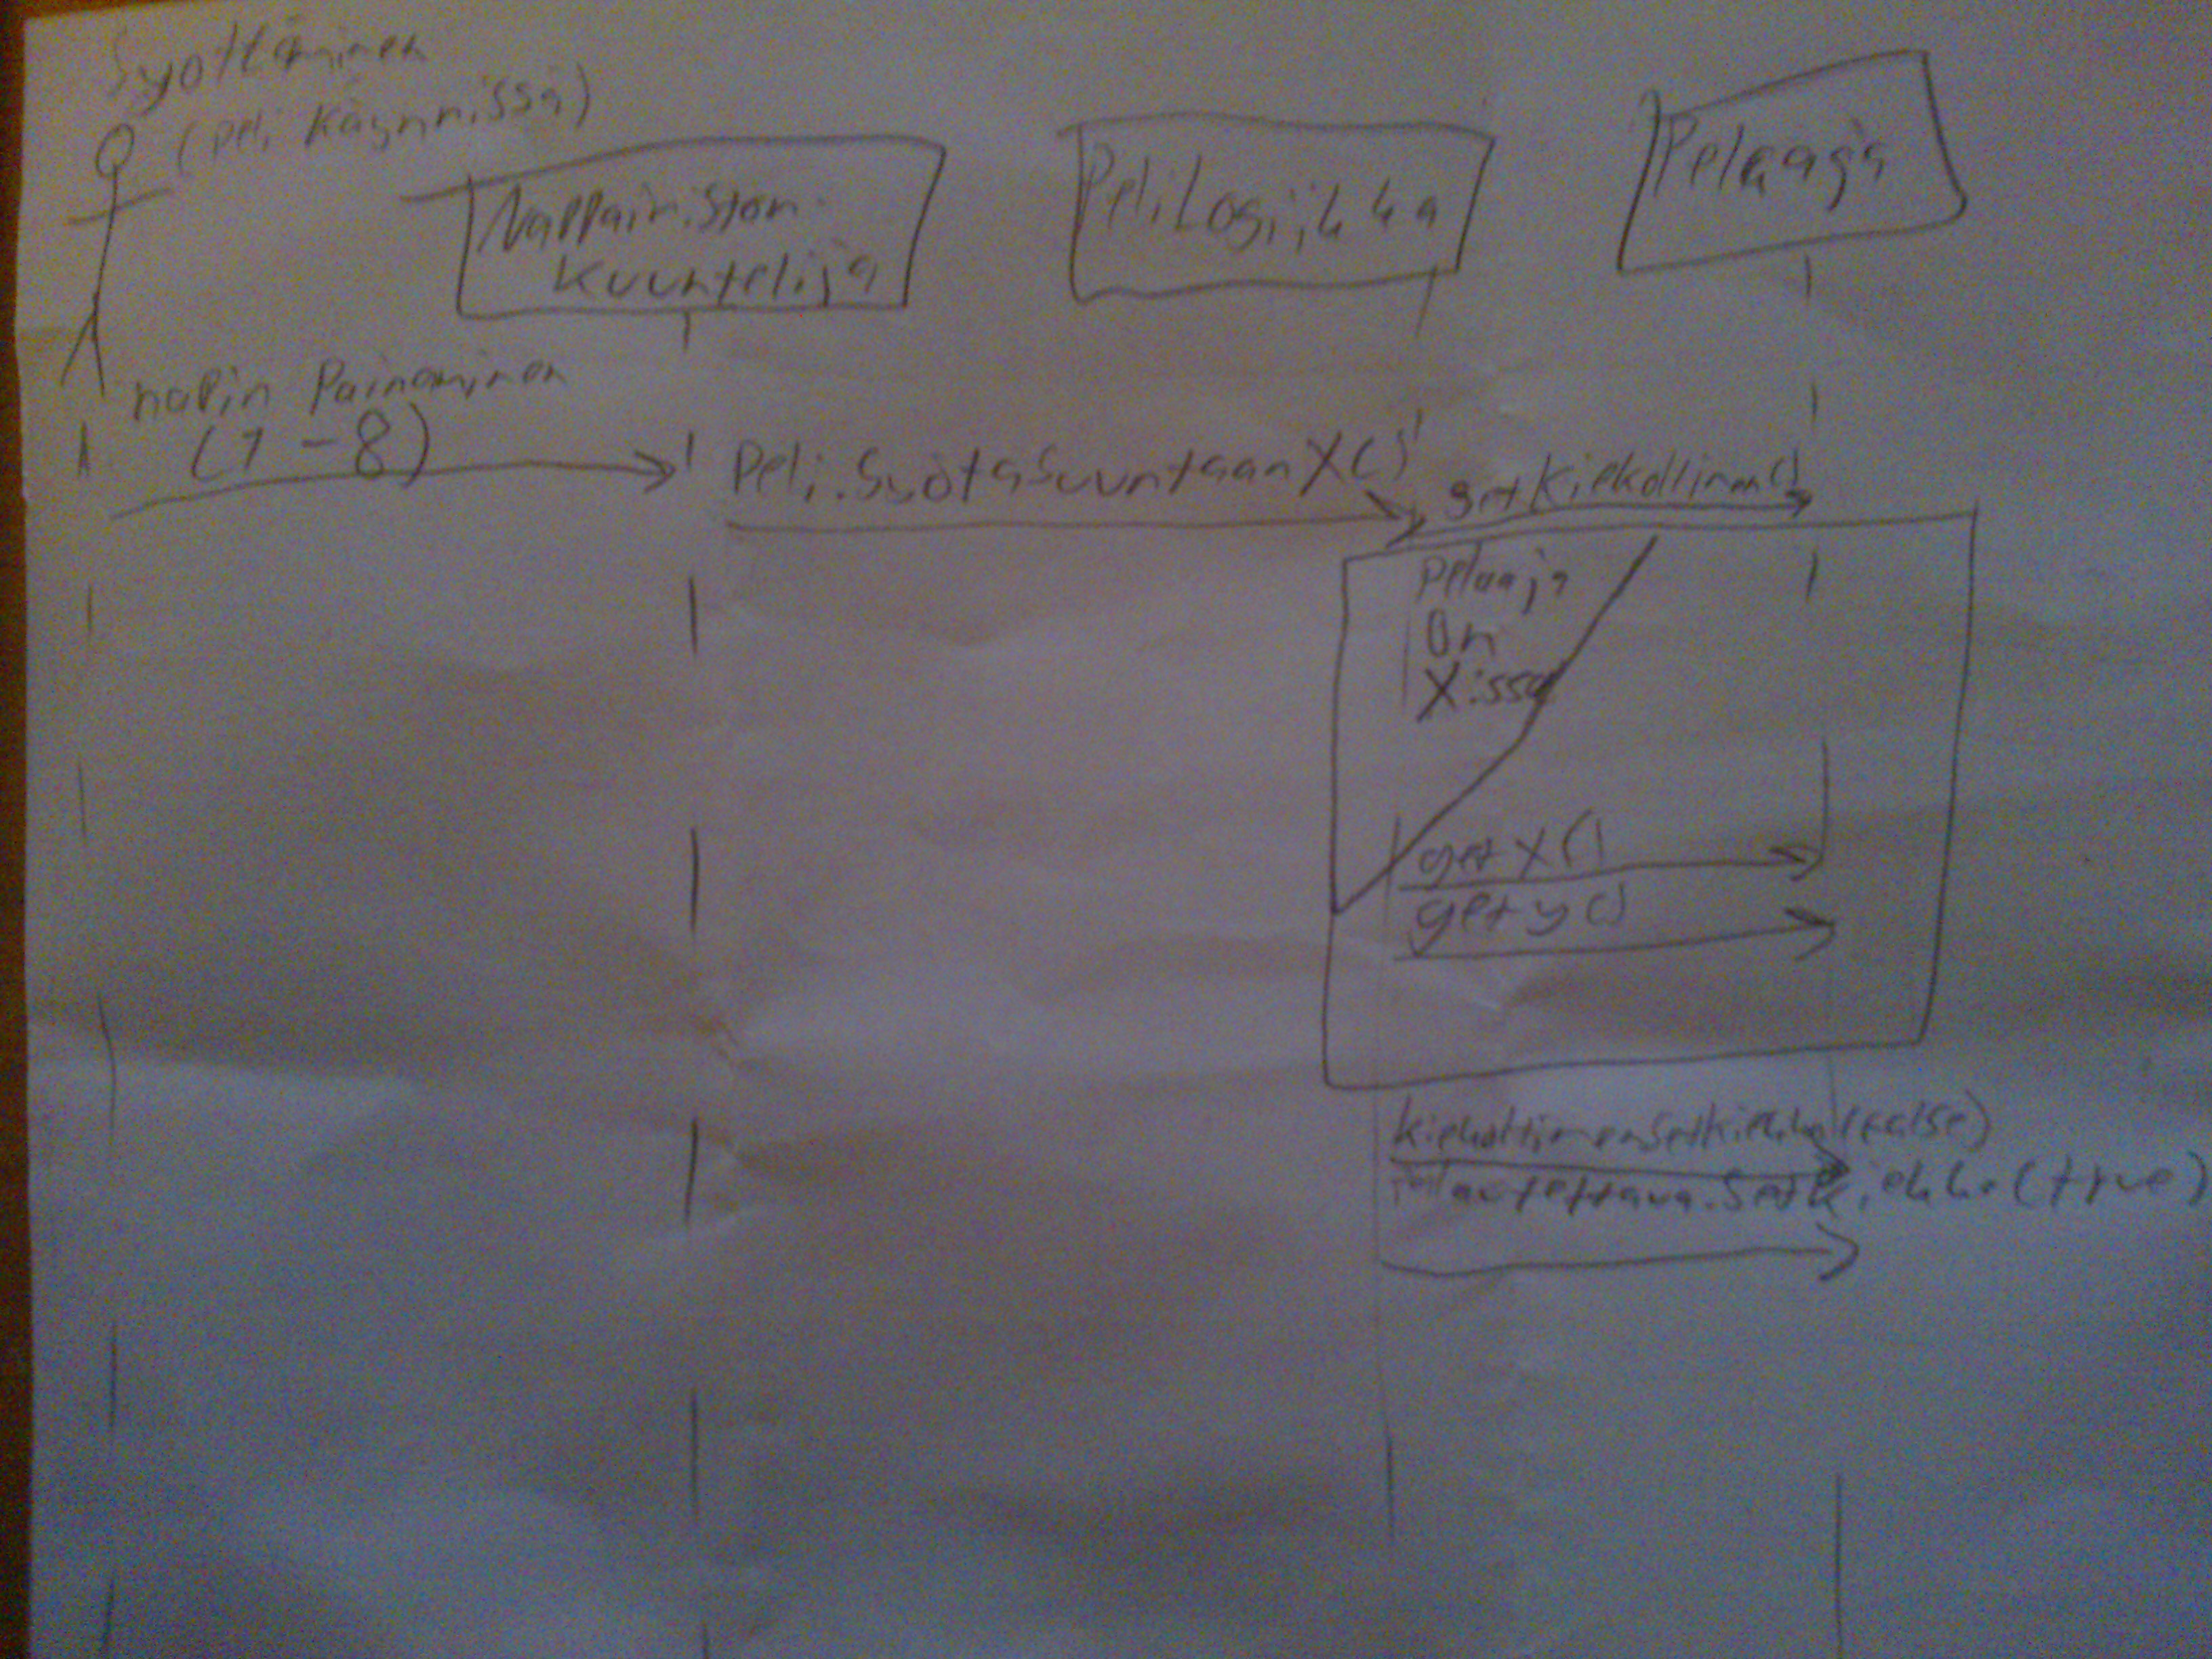 Syöttäminen
(peli käynnissä)
Näppäimistön
kuuntelija
PeliLogiikka
Pelaaja
napin Painaminen
(1-8)
Peli.SyötäSuuntaanX()
getKiekollinen()
Pelaaja
On
X:ssä
getX()
gety()
kiekollinen.setkiekko(false)
.Setkiekko(true)